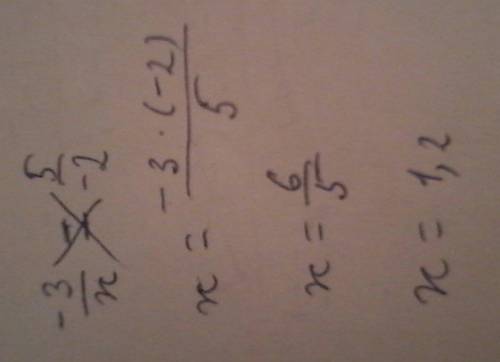 -3/x = 5/-2
x = -3 · (-2)/5
x = 6/5
x = 1,2